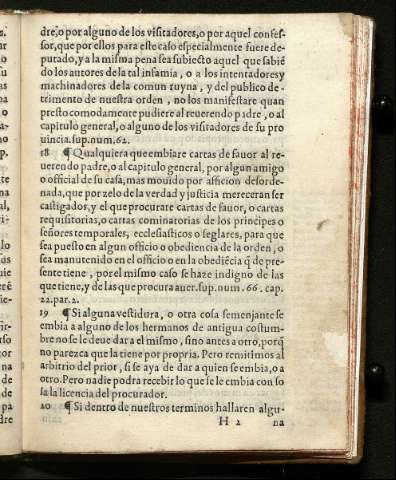 dre, o por alguno de los visitadores, o por aquel confes-
sor, que por ellos para este caso especialmente fuere de-
putado, y a la misma pena sea subiecto aquel que sabiẽ
do los autores de la tal infamia, o a los intentadores y
machinadores de la comun ruyna, y del publico de-
trimento de nuestra orden, no los manifestare quan
presto comodamente pudiere al reuerendo padre, o al
capitulo general, o alguno de los visitadores de su pro
uincia. sup. num. 62.
18 ¶ Qualquiera que embiare cartas de fauor al re-
uerendo padre, o al capitulo general, por algun amigo
o official de su casa, mas mouido por afficion desorde-
nada, que por zelo de la verdad y justicia merecera ser
castigados, y el que procurare cartas de fauor, o cartas
requisitorias, o cartas cominatorias de los principes o
señores temporales, ecclesiasticos o seglares, para que
sea puesto en algun officio o obediencia de la orden, o
sea manutenido en el officio o en la obediẽcia q̃ de pre-
sente tiene, por el mismo caso se haze indigno de las
que tiene, y de las que procura auer. sup. num. 66. cap.
22. par. 2.
19 ¶ Si alguna vestidura, o otra cosa semejante se
embia a alguno de los hermanos de antigua costum-
bre no se le deue dar a el mismo, sino antes a otro, porq̃
no parezca que la tiene por propria. Pero remitimos al
arbitrio del prior, si se aya de dar a quien se embia, o a
otro. Pero nadie podra recebir lo que le embia con so
la la licencia del procurador.
20 ¶ Si dentro de nuestros terminos hallaren algu-
H 2 na